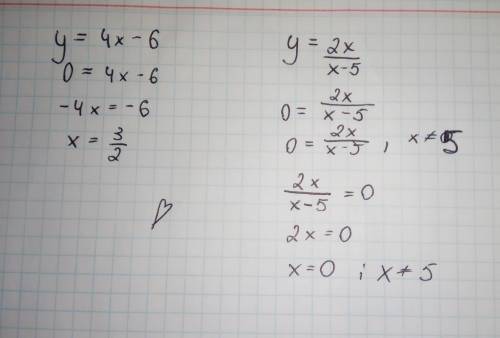 y = 4x - 6
0 = 4x - 6
-4x = -6
x = 3/2
y = 2x/(x-5)
0 = 2x/(x-5)
0 = 2x/(x-5) , x ≠ 5
2x/(x-5) = 0
2x = 0
x = 0 ; x ≠ 5